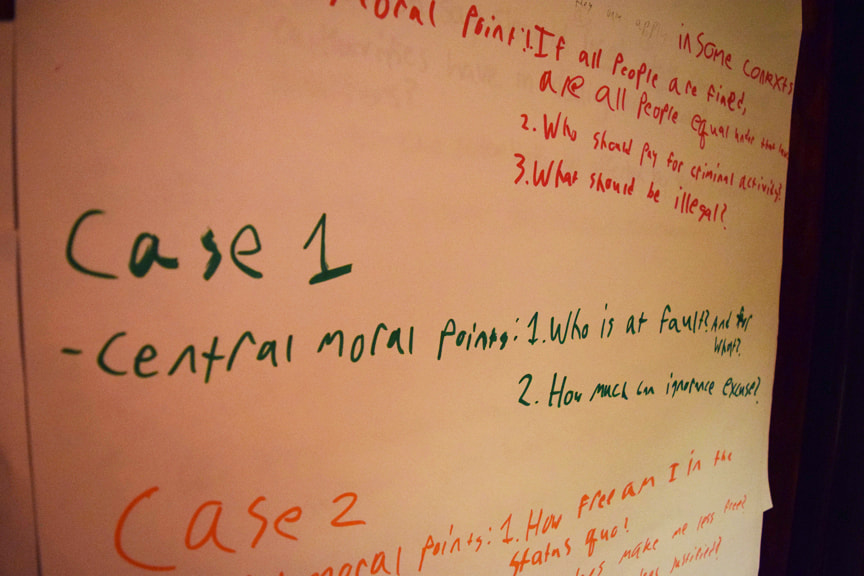 in some contexts
moral point: 1. If all people are fined,
are all people equal under that law
2. Who should pay for criminal activity?
3. What should be illegal?
Case 1
- Central moral points: 1. Who is at fault? And for
what?
2. How much can ignorance excuse?
Case 2
moral points: 1. How free am I in the
status quo?
make me less free?
less justified?